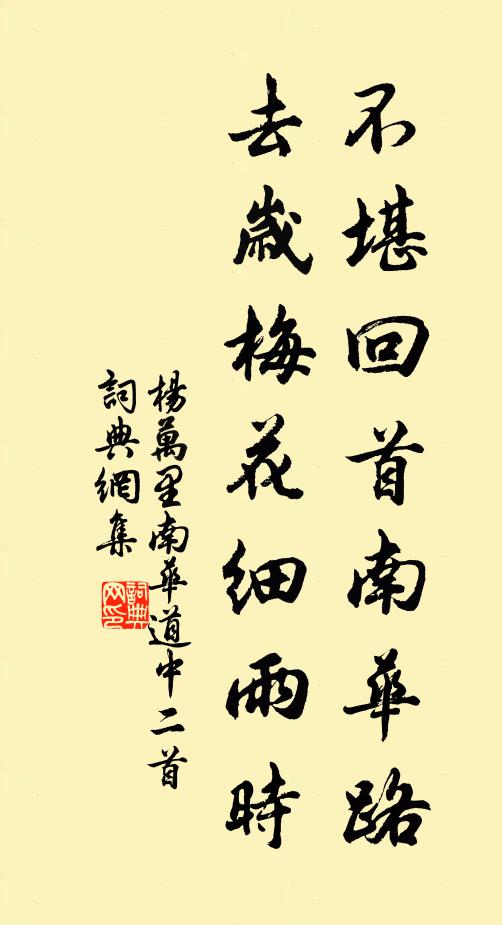 不堪回首南華路
去歲梅花細雨時
楊萬里南華道中二首
詞典網集
詞典网印